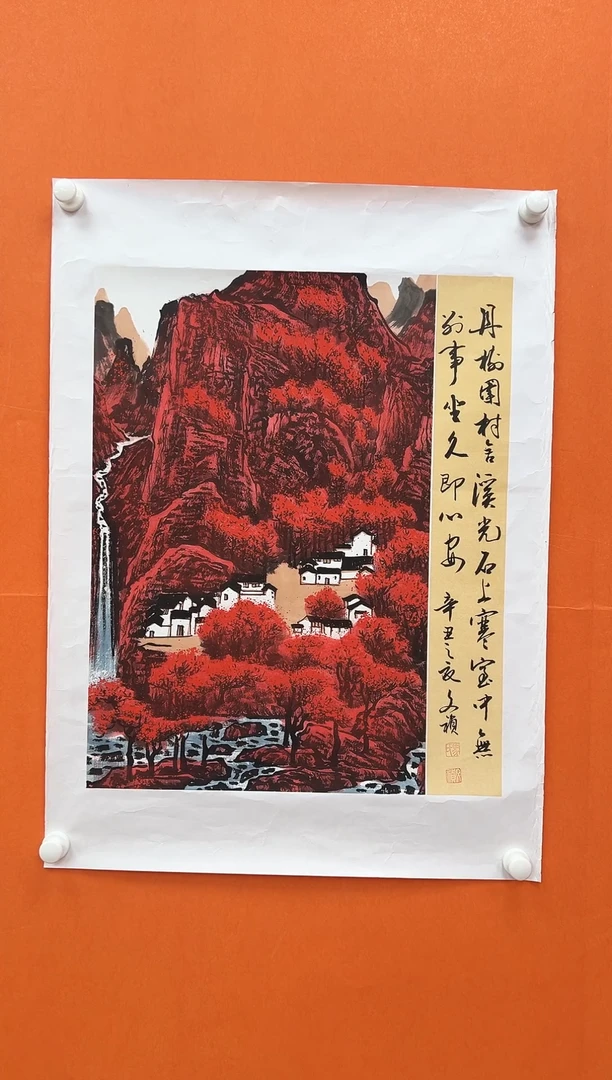 丹樹圍村舍溪光石上寒室中無
別事坐久即心安 辛丑之 文禎